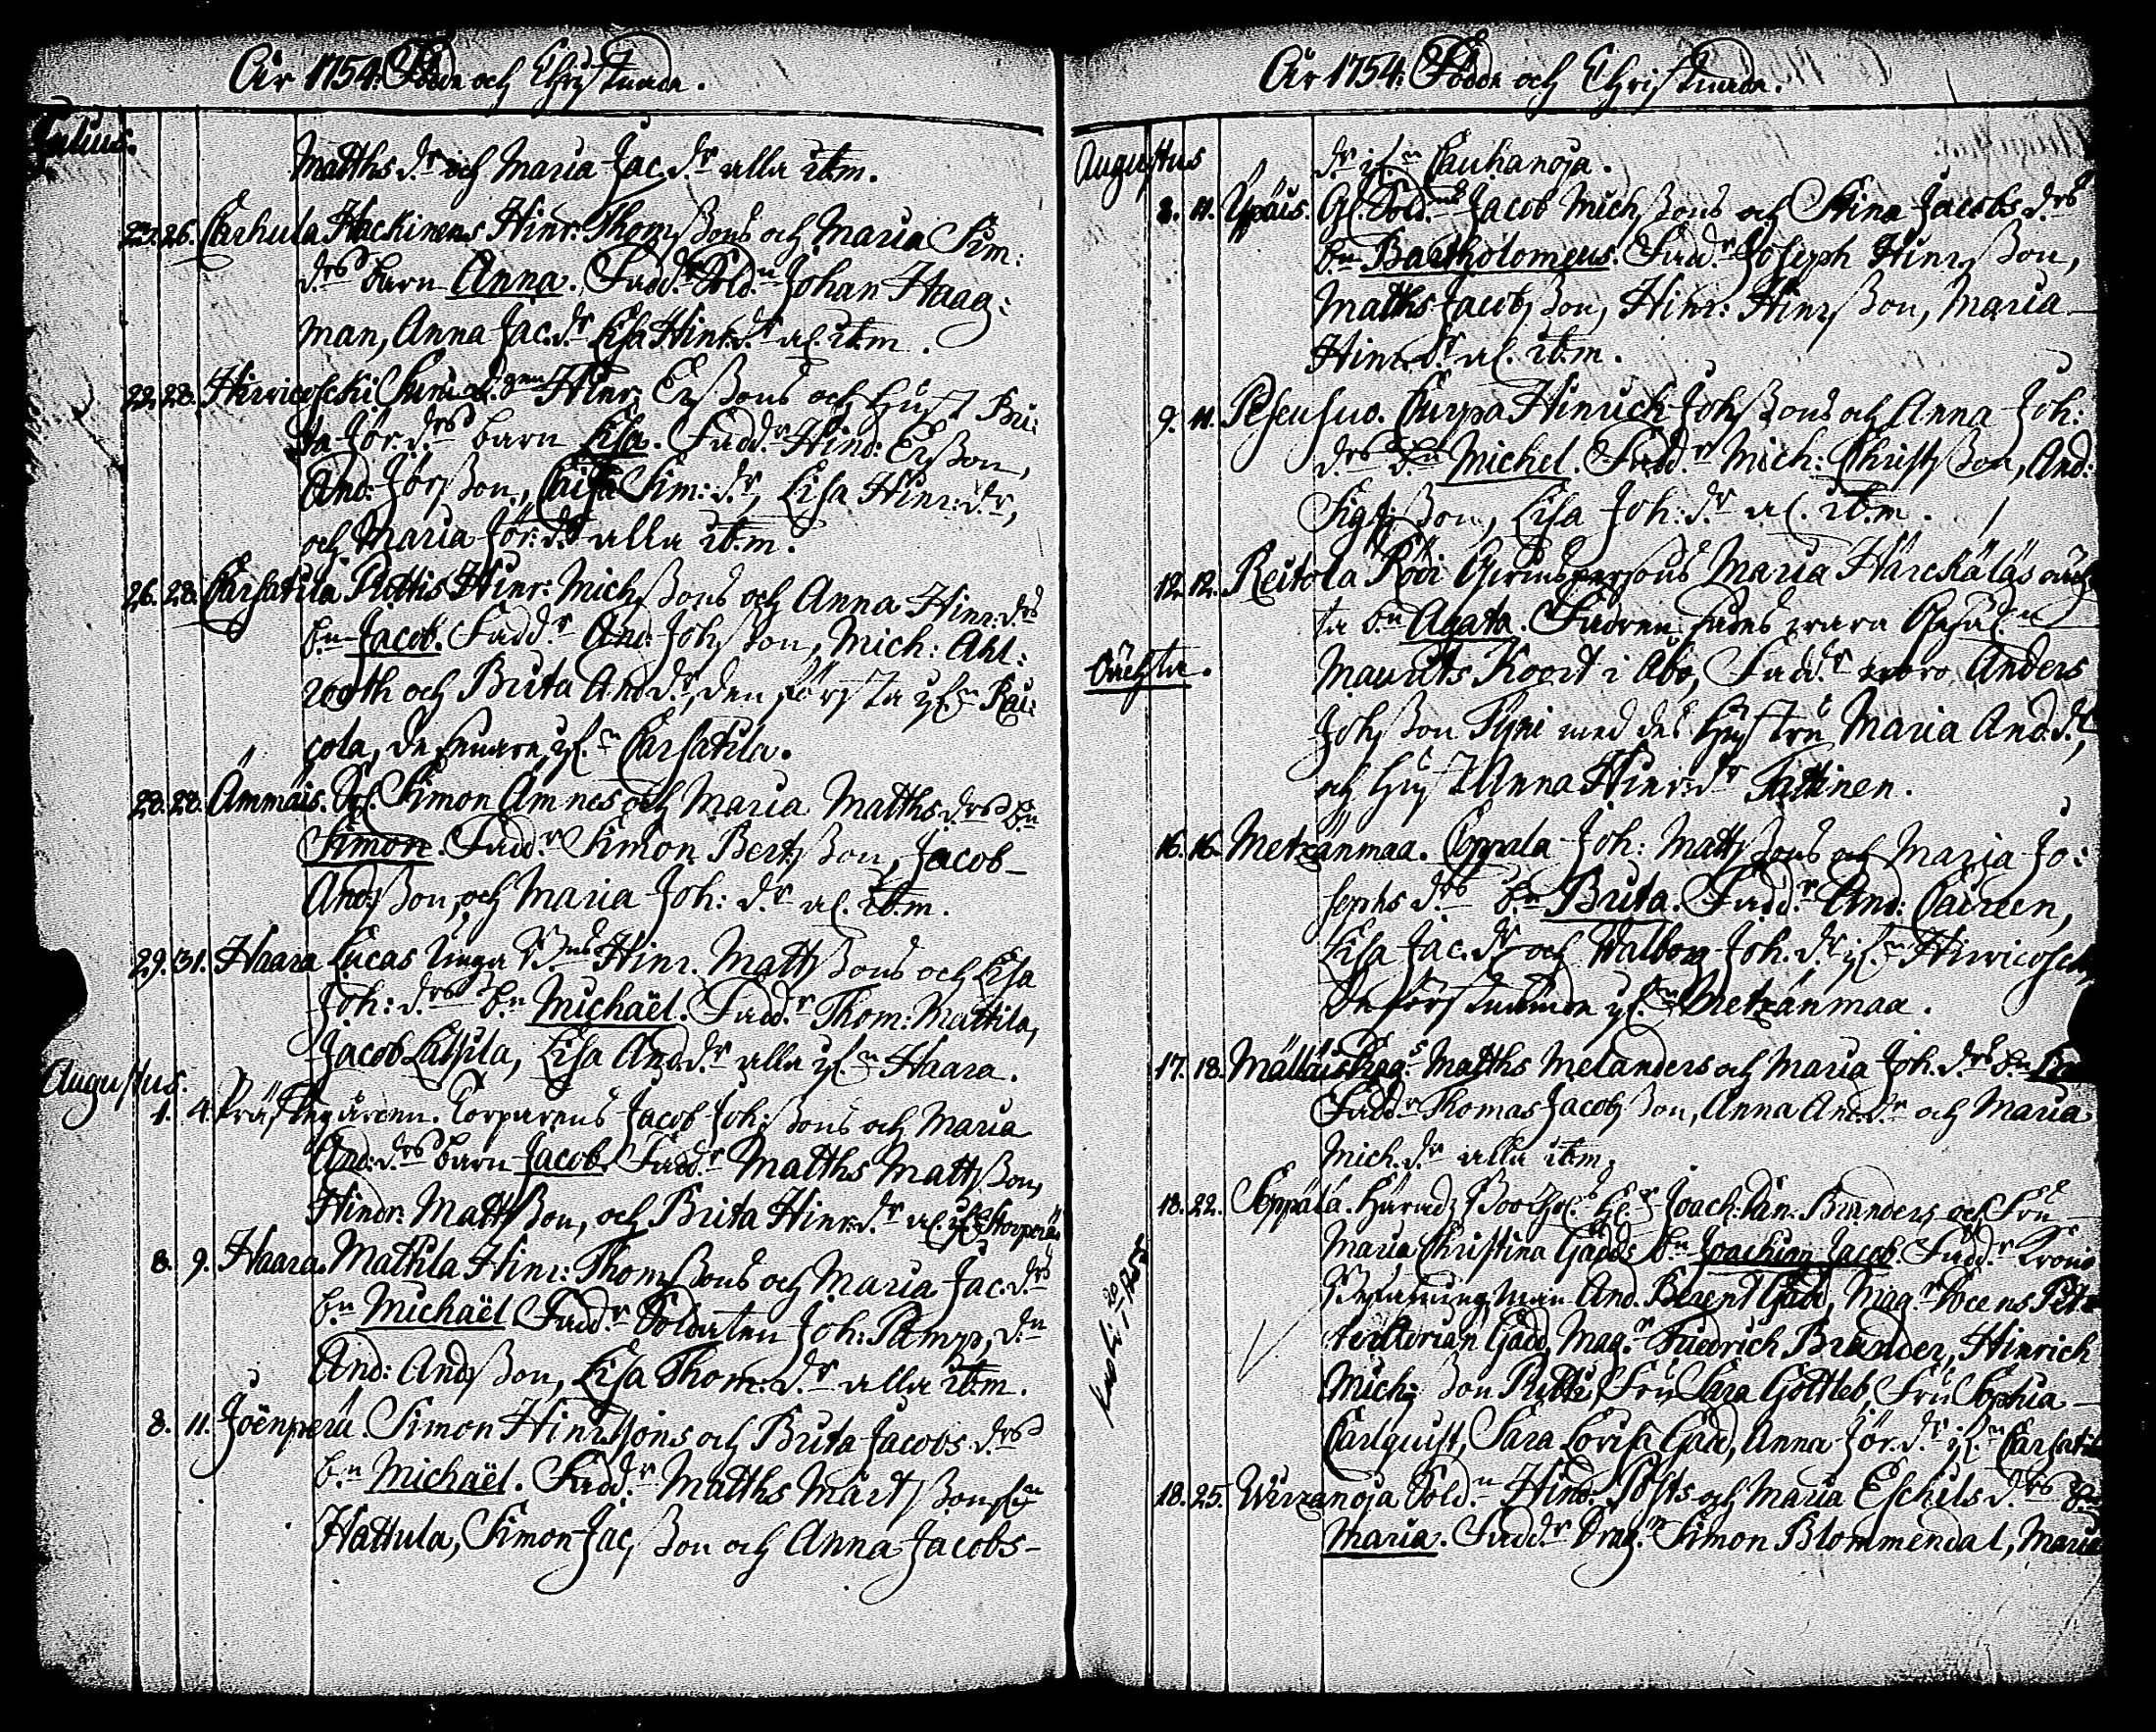 År 1754. Födde och Christnade.
Julius.
Matths dr och Maria Jac. dr alla ib:m.
23. 26. Carhula Hackinens Hinr: Thomssons och Maria Sim:
drs barn Anna. Fadd:r Sold:n Johan Haag:
man, Anna Jac. dr Lisa Hinr. dr al. ib:m.
22. 28. Hirvicoski Hinr: Erssons och Hust Bri:
ta Jör. drs barn Lisa. Fadd:r Hind: Ersson,
And: Jörsson, Caisa Sim: dr, Lisa Hinr: dr,
och Maria Jör: dr alla ib:m.
26. 28. Carsatila Pottis Hinr: Michssons och Anna Hinr. drs
b:n Jacob. Fadd:r And: Johsson, Mich: Ahl:
rooth och Brita And dr, den första if:n Rai:
cola, de senare if:n Carsatila.
28. 28. Ämmäis. Simon Ämnes och Maria Matths drs b:n
Simon. Fadd:r Simon Bertsson, Jacob
Andsson, och Maria Joh: dr al. ib:m.
29. 31. Haara Lucas Hinr. Mattssons och Lisa
Joh: drs b:n Michaël. Fadd:r Thom: Mattila,
Jacob Lassila, Lisa And. dr alla if:n Haara.
Augustus.
1. 4. Prästegården. Torparens Jacob Johssons och Maria
And: drs barn Jacob. Fadd:r Matths Mattsson,
Hindr: Mattsson, och Brita Hinr. dr al. if:n
8. 9. Haara. Mattila Hinr: Thomssons och Maria Jac. drs
b:n Michaël. Fadd:r Soldaten Joh: Pamp, d:n
And: Andsson, Lisa Thom: dr alla ib:m.
8. 11. Joënperä. Simon Hinrssons och Brita Jacobs drs
b:n Michaël. Fadd:r Matths Märtsson if:n
Hattula, Simon Jacsson och Anna Jacobs-
År 1754. Födde och Christnade.
Augustus
dr if:n Cauhanoja.
8. 11. Ypäis. Gl. Sold:ns Jacob Michssons och Stina Jacobs drs
b:n Bartholomeus. Fadd:r Joseph Hinrsson,
Matths Jacobsson, Hinr: Hinrsson, Maria
Hinr. dr al. ib:m.
9. 11. Pesensuo. Curppa Hinrich Johssons och Anna Joh:
drs b:n Michel. Fadd:r Mich: Christsson, And:
Sigfsson, Lisa Joh: dr al. ib:m.
12. 12. Reitola Maria Härckäläs oäch
ta b:n Agata. Fadren sades vara
Oächta.
Maurits Koort i Åbo, Fadd:r voro Anders
Johsson Pyri med des Hustru Maria And. dr,
och Hust Anna Hinr. dr Tattinen.
16. 16. Metzänmaa. Coppala Joh: Mattssons och Maria Jo:
sephs drs b:n Brita. Fadd:r And: Cairen,
Lisa Jac. dr och Walborg Joh. dr if:n Hirvicoski,
De förstnämnda if:n Metzänmaa.
17. 18. Mälläis Matths Melanders och Maria Joh. drs b:n
Fadd:r Thomas Jacobsson, Anna And. dr och Maria
Mich. dr alla ib:m.
18. 22. Seppälä. Joach. Dan. Branders och Fru
Maria Christina Gadds b:n Joachim Jacob. Fadd:r
And. Berent Gadd, Mag:r
Gadd, Mag:r Friedrich Brander, Hinrich
Michsson Fru Sara Gottleb, Fru Sophia
Carlquist, Sara Lovisa Gadd, Anna Jör. dr if:n Carsatila
18. 25. Wirzanoja Sold:n Hind. Posts och Maria Eschils drs b:n
Maria. Fadd:r Drag:n Simon Blommendal, Maria